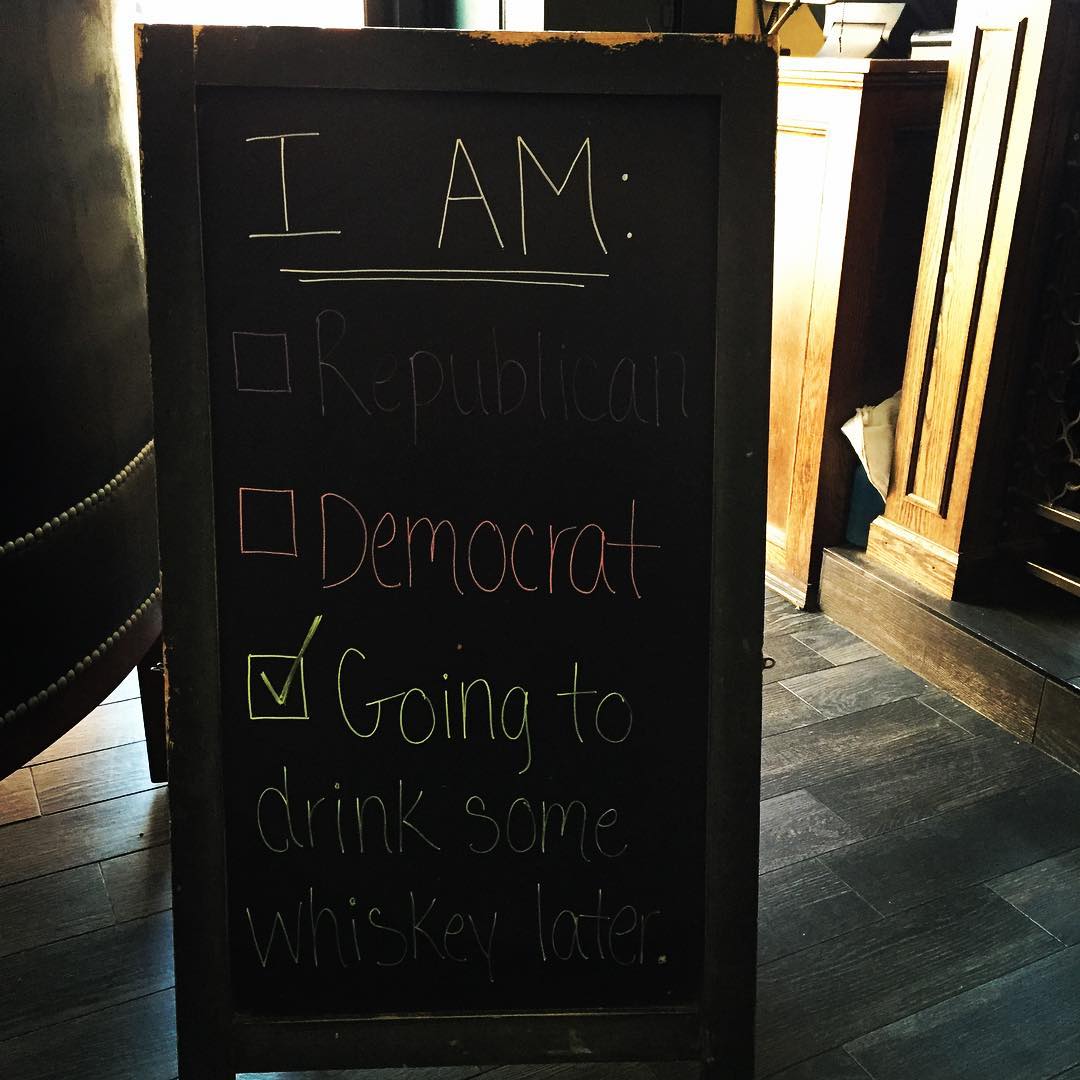 I AM:
Republican
Democrat
Going to
drink some
whiskey later.